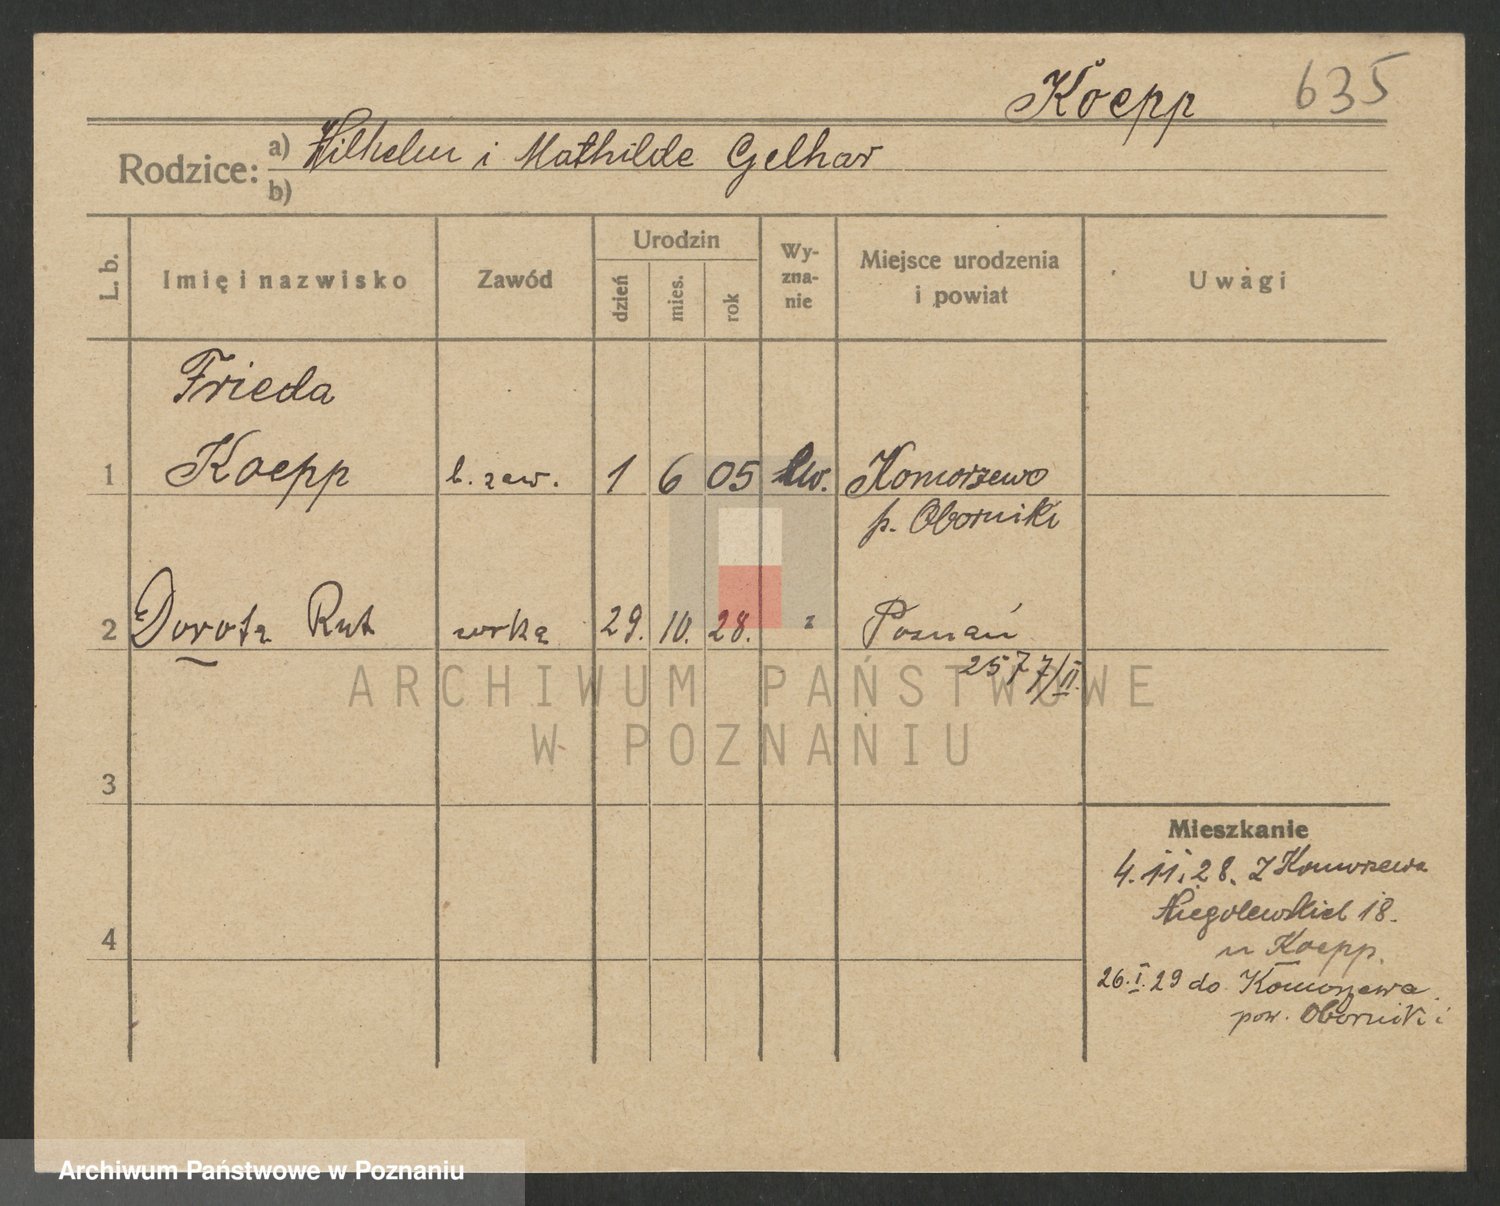 Koepp 635
Rodzice: a) Wilhelm i Mathilde Gelhar
b)
L. b. Imię i nazwisko Zawód Urodzin dzień mies. rok Wyznanie Miejsce urodzenia i powiat Uwagi
Frieda
1 Koepp b. zaw. 1 6 05 ew. Komorzewo
p. Oborniki
2 Dorota Rut córka 29. 10. 28. " Poznań
2577/II.
ARCHIWUM PAŃSTWOWE
W POZNANIU
3
Mieszkanie
4. 11. 28. Z Komorzewa
Niegolewskich 18.
4 u Koepp.
26. I. 29 do Komorzewa
pow. Oborniki
Archiwum Państwowe w Poznaniu